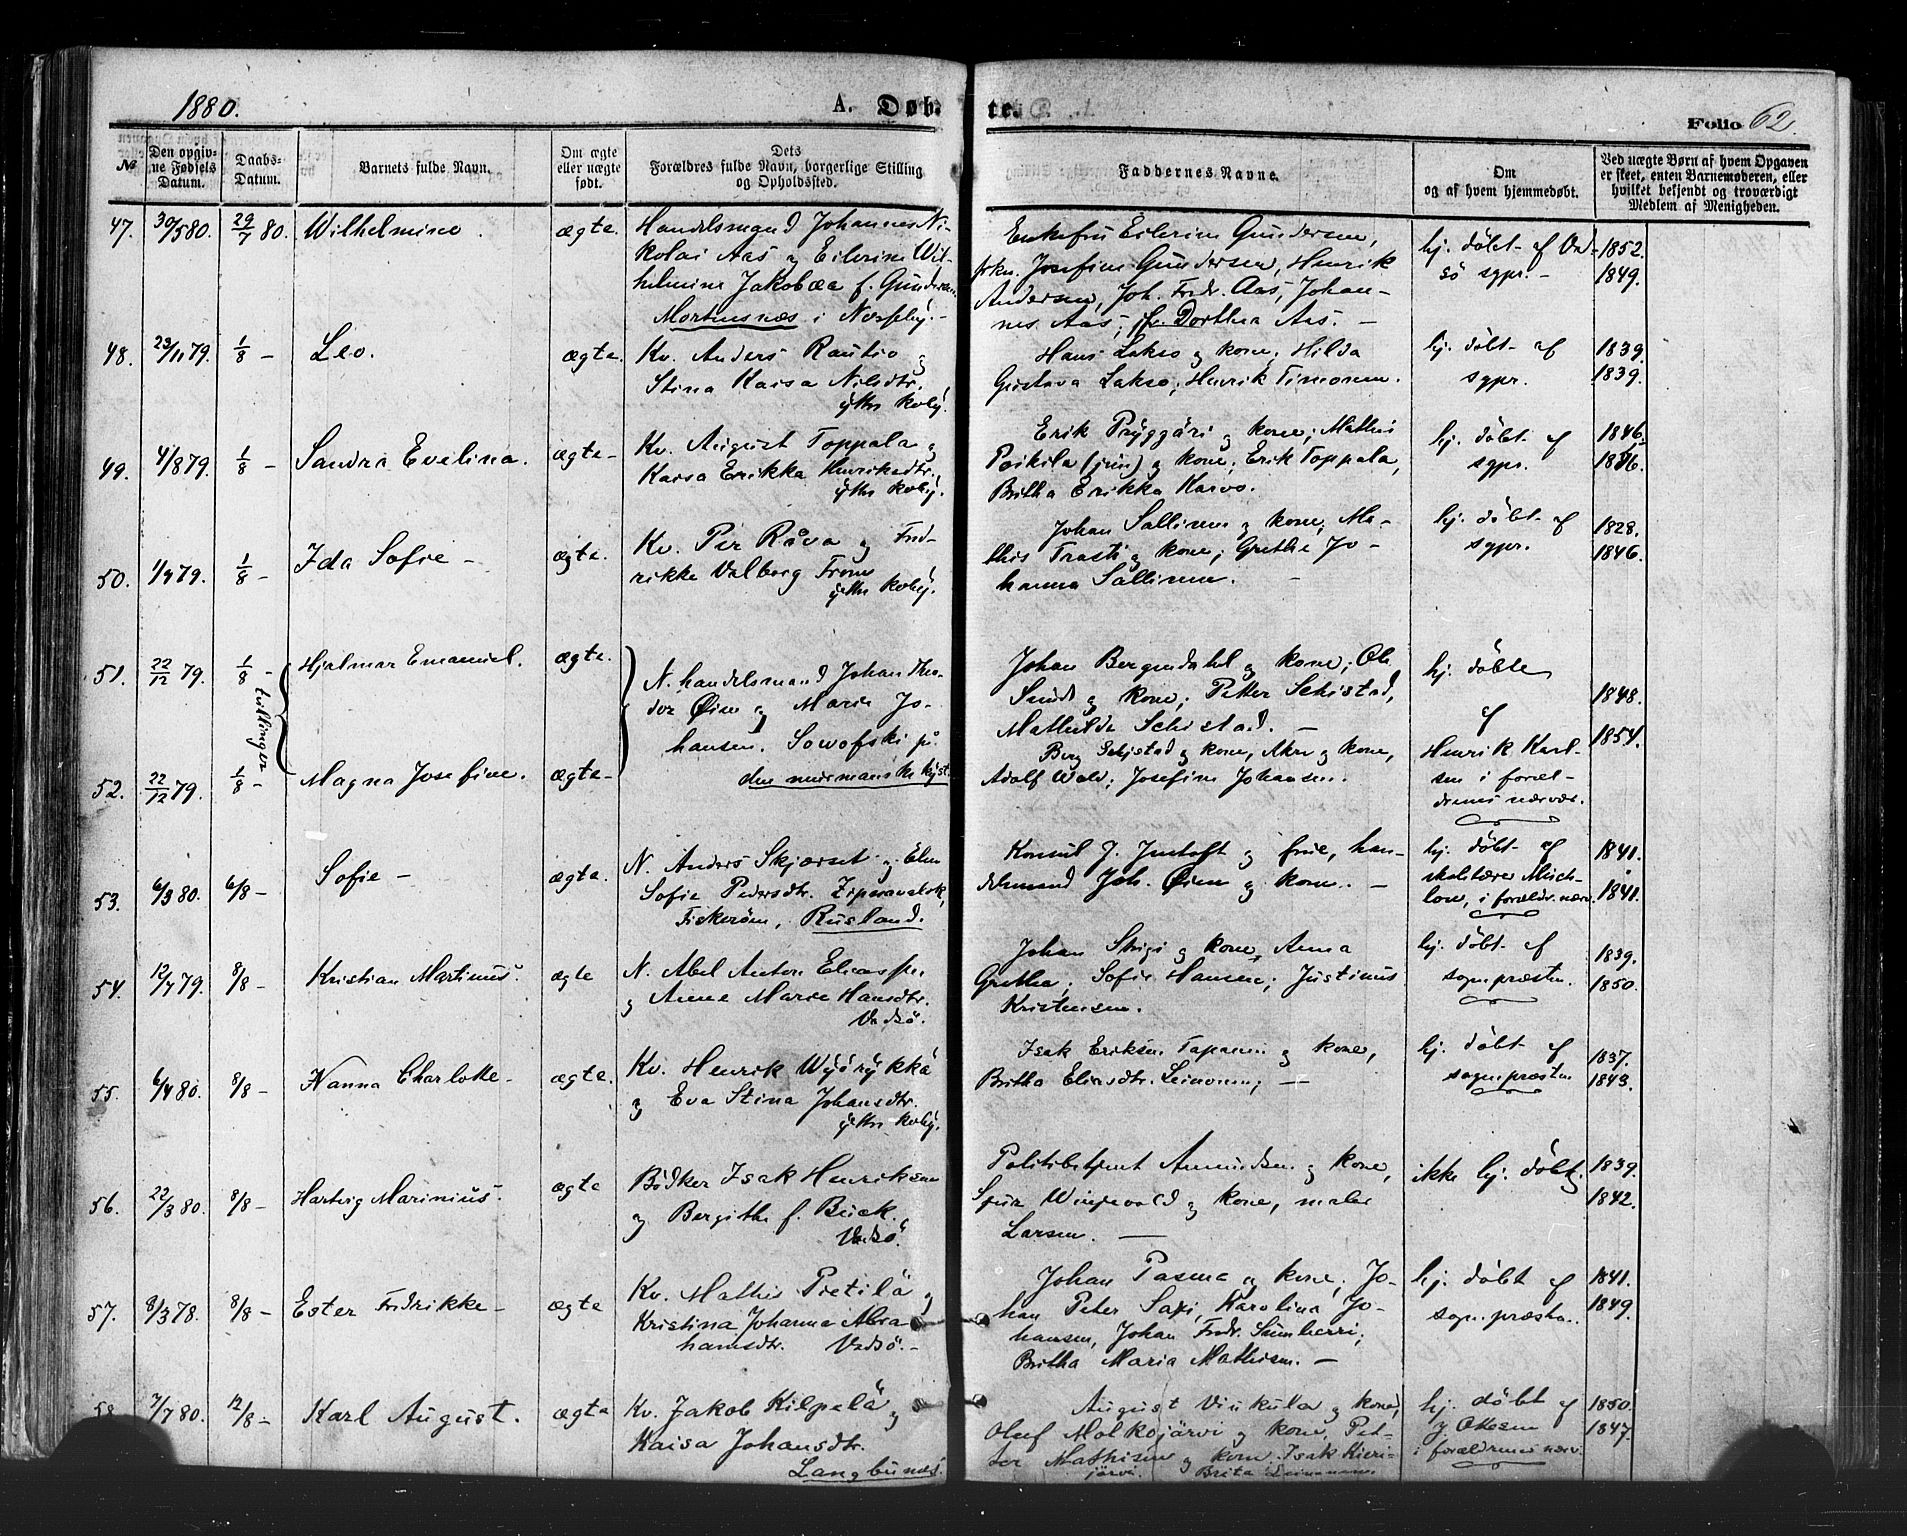 1880.
A. Døbte.
Folio 62.
№
Den opgivne Fødsels Datum.
Daabs-Datum.
Barnets fulde Navn.
Om ægte eller uægte født.
Dets Forældres fulde Navn, borgerlige Stilling og Opholdssted.
Faddernes Navne.
Om og af hvem hjemmedøbt.
Ved uægte Børn af hvem Opgaven er skeet, enten Barnemoderen, eller hvilket bekjendt og troværdigt Medlem af Menigheden.
47. 30/5 80. 29/7 80. Wilhelmine. ægte.
Handelsmand Johannes Ni-
kolai Aas og Eilerine Wil-
helmine Jakobæa f. Gundersen.
Mortensnæs i Næsseby. -
Enkefru Eilerine Gundersen,
frkn. Josefine Gundersen, Henrik
Andersen, Joh. Fredr. Aas, Johan-
nes Aas, Dorthea Aas. -
hj. døbt af Vad-
sø sgpr. -
1852.
1849.
48. 23/11 79. 1/8 - Leo. ægte.
Kv. Anders Rautio og
Stina Kaisa Nilsdtr.
ytre kvby.
Hans Lakso og kone; Hilda
Gustava Lakso, Henrik Timonen.
hj. døbt af
sgpr.
1839.
1839.
49. 4/8 79. 1/8 - Sandra Evelina. ægte -
Kv. August Toppala og
Kaisa Erikka Henriksdtr.
ytre kvby.
Erik Pryggäri og kone; Mathis
Poikila (jun) og kone; Erik Toppala,
Britha Erikka Karvo.
hj. døbt af
sgpr.
1846.
50. 1/7 79. 1/8 - Ida Sofie - ægte.
Kv. Per Råva og Fred-
rikke Valborg From
ytre kvby.
Johan Sallinen og kone; Ma-
this Trasti og kone; Grethe Jo-
hanna Sallinen. -
hj. døbt af
sgpr.
1828.
1846.
51. 22/12 79. 1/8 - Hjalmar Emanuel. ægte.
tvillinger
N. handelsmand Johan Theo-
dor Øien og Marie Jo-
hansen. Sowofski på
den murmanske kyst.
Johan Bergendahl og kone; Ole
Sund og kone; Petter Schistad,
Mathilde Schistad. -
hj. døbte
af
Henrik Karl-
sen i foræl-
drenes nærvær.
1848.
1854.
52. 22/12 79. 1/8 - Magna Josefine. ægte -
Berg Schjstad og kone, Akre og kone,
Adolf Wold; Josefine Johansen.
53. 6/3 80. 6/8 - Sofie - ægte.
N. Anders Skjærset og Elen
Sofie Pedersdtr. Zipnavolok,
Fiskerøen, Rusland.
Konsul J. Justoft og frue, han-
delsmand Joh. Øien og kone. -
hj. døbt af
skolelærer Mich-
low, i forældr. nærv.
1841.
1841.
54. 12/7 79. 8/8 - Kristian Martinus. ægte
N. Abel Anton Eliassen
og Anne Marie Hansdtr.
Vadsø.
Johan Strigi og kone, Anna
Gretha; Sofie Hansen; Justinus
Kristensen.
hj. døbt af
sognepræsten.
1839.
1850.
55. 6/4 80. 8/8 - Nanna Charlotte - ægte.
Kv. Henrik Wyörykkä
og Eva Stina Johansdtr.
ytre kvby.
Isak Eriksen Tapanin og kone,
Britha Eliasdtr. Leinonen; -
hj. døbt af
sognepræsten
1837.
1843.
56. 22/3 80. 8/8 - Hartvig Marinius. ægte
Bødker Isak Henriksen
og Bergithe f. Beck.
Vadsø.
Politibetjent Amundsen og kone,
Sjur Windevold og kone, maler
Larsen. -
ikke hj. døbt
1839.
1842.
57. 8/3 78. 8/8 - Ester Fredrikke - ægte
Kv. Mathis Pietilä og
Kristina Johanna Abra-
hamsdtr. Vadsø. -
Johan Pasma og kone, Jo-
han Peter Saxi, Karolina Jo-
hansen, Johan Fredr. Sumberri;
Britha Maria Mathisen. -
hj. døbt af
sognepræsten.
1841.
1849.
58. 7/7 80. 12/8 - Karl August. ægte
Kv. Jakob Kilpelä og
Kaisa Johansdtr.
Langbunes.
August Viukula og kone,
Oluf Molkojärvi og kone, Pet-
ter Mathisen og kone. Isak Kieri-
järvi. Brita Leinonens
hj. døbt af
J. Ottesen
i forældrenes nærv.
1850.
1847.